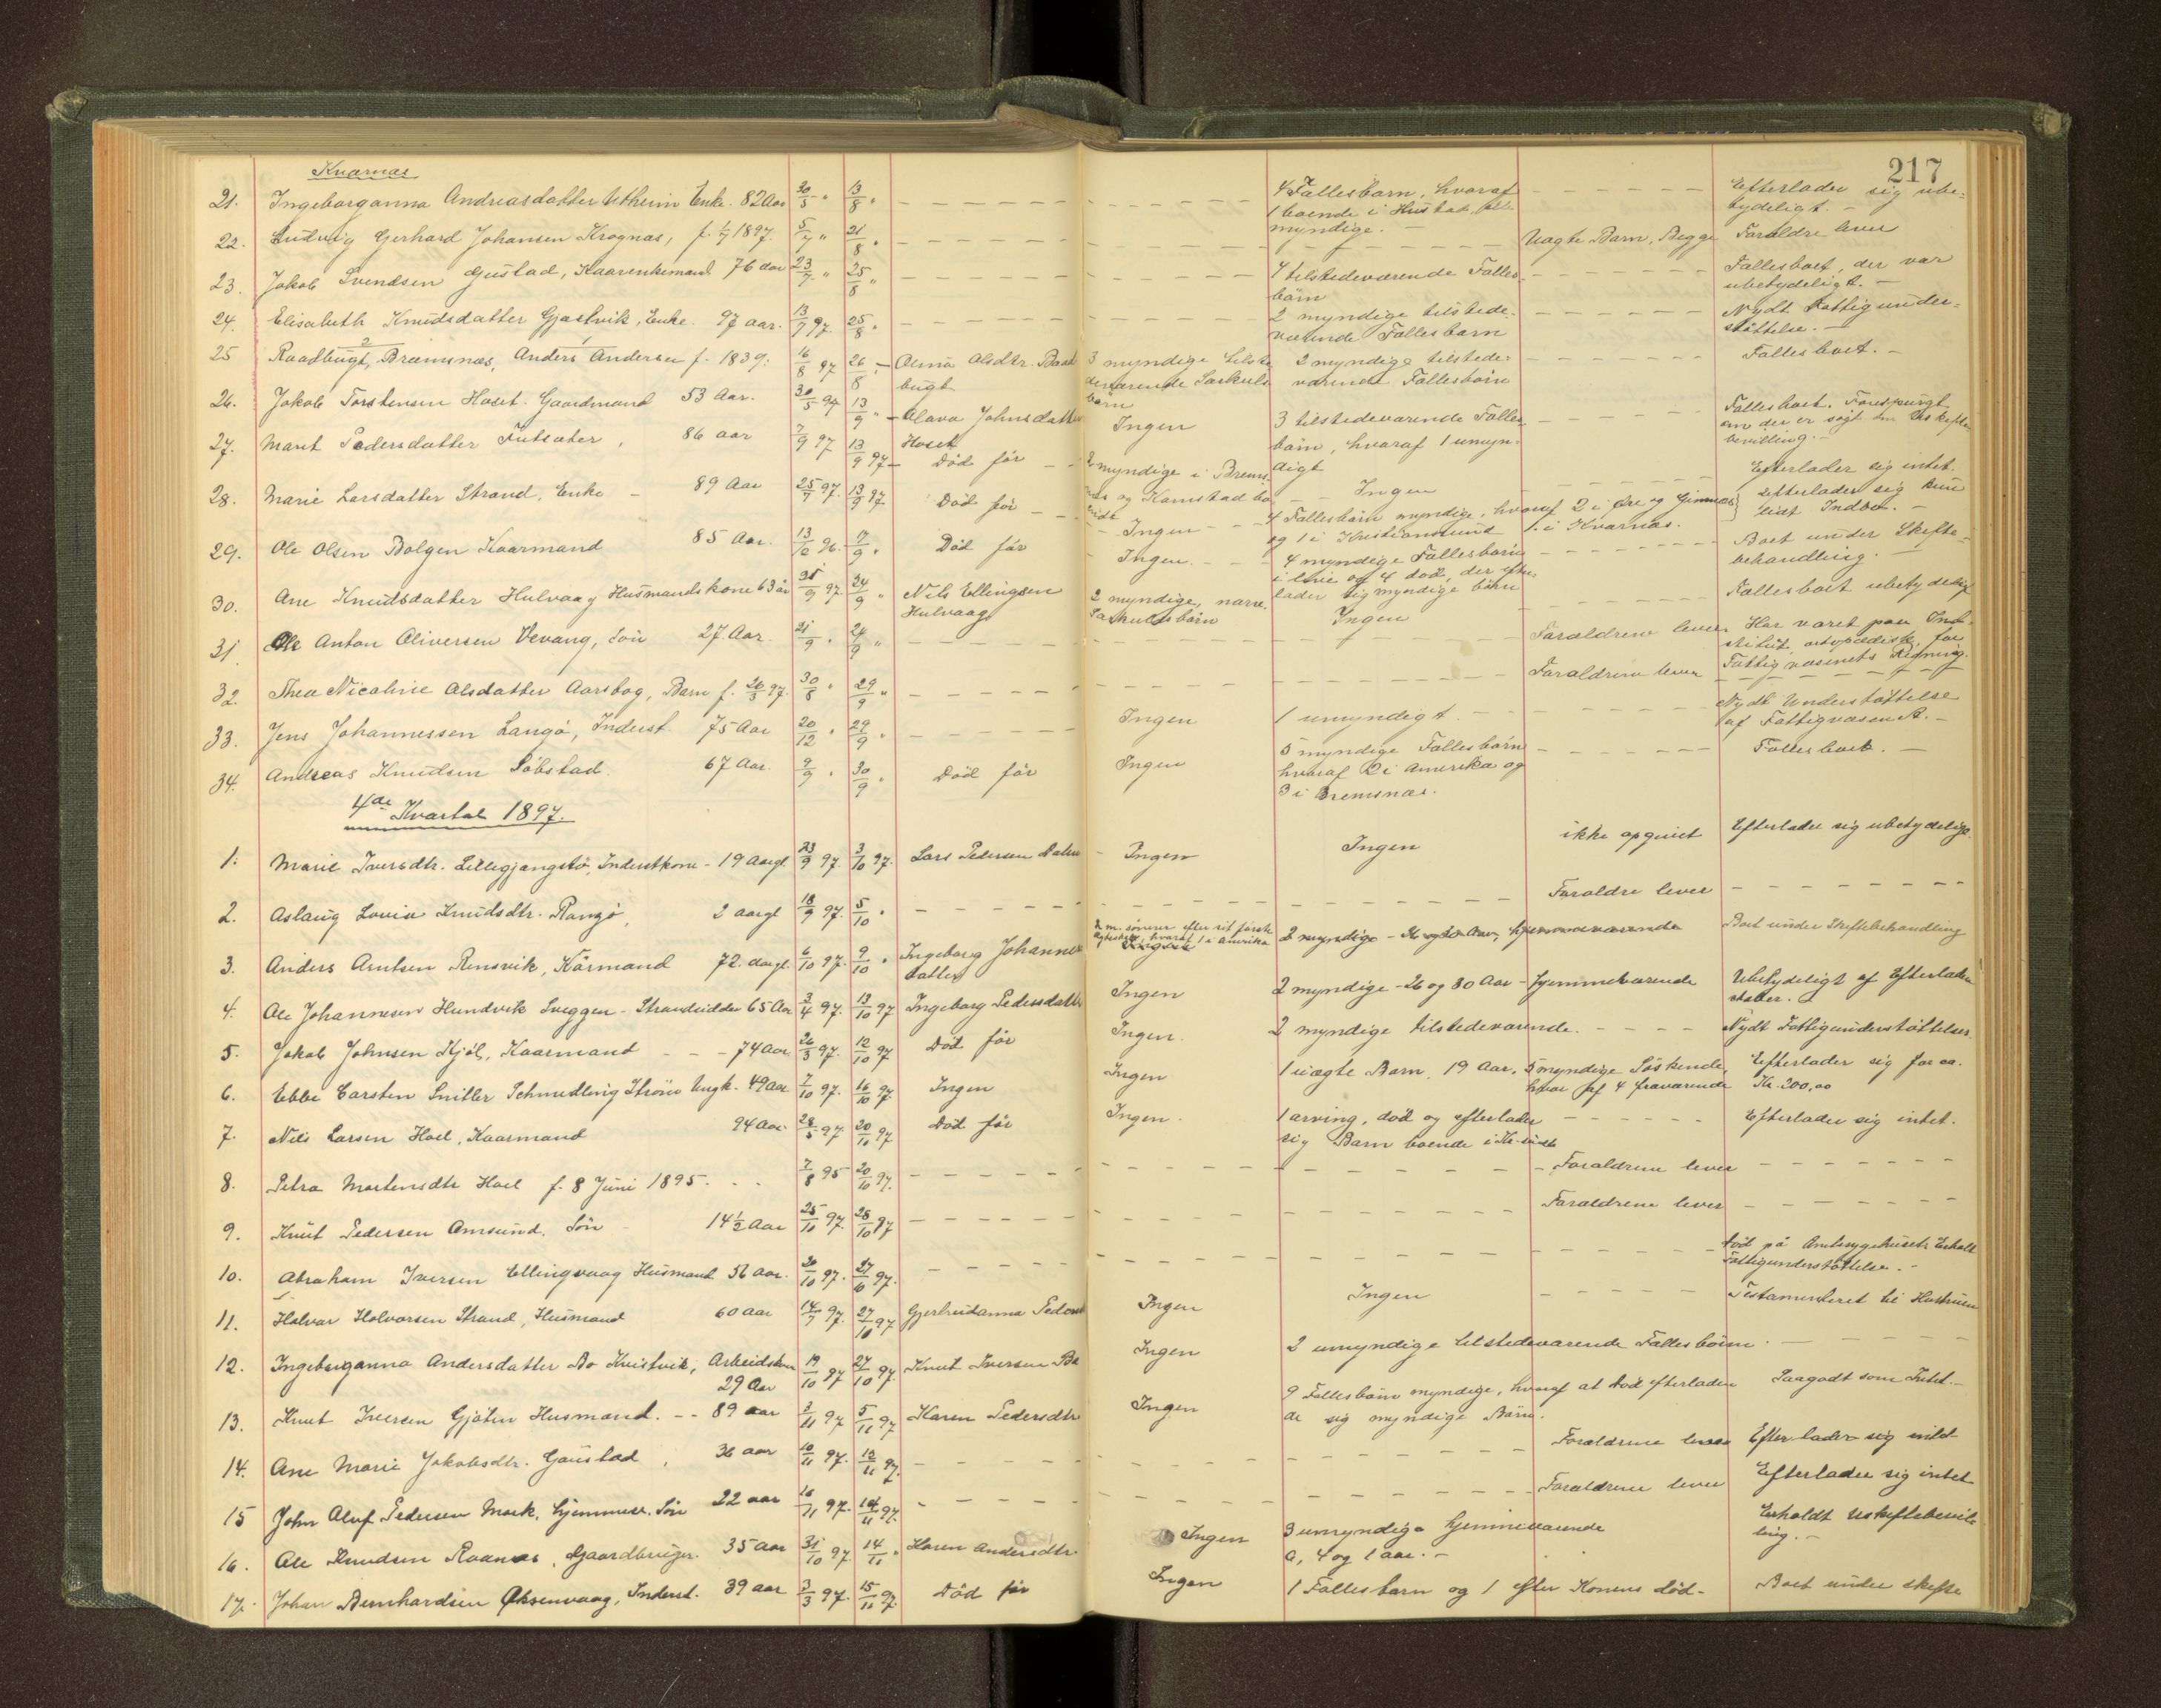 217
Kvarnæs
21. Ingeborganna Andreasdatter Utheim Enke. 82 Aar 30/5 " 13/8 " 4 Fællesbørn, hvoraf Efterlader sig ube-
1 boende i Hustad myndige. tydeligt. -
22. Ludvig Gerhard Johansen Krognæs, f. 1/7 1897. 5/7 " 21/8 " Uægte Barn, Begge Forældre lever
23. Jakob Svendsen Gustad, Kaarenkemand 76 aar 23/7 " 25/8 " 4 tilstedeværende Fælles- Fællesboet, der var
børn ubetydeligt. -
24. Elisabeth Knudsdatter Gjøstvik, Enke. 97 aar. 13/7 97. 25/8 " 2 myndige tilstede- Nydt Fattigunder-
værende Fællesbørn støttelse. -
25 Raadbugt, Bræmsnæs, Anders Andersen f. 1839. 16/8 97 26/8 " Olina Olsdtr. Baad 3 myndige tilste 2 myndige tilstede- Fællesboet. -
bugt deværende Særkuls værende Fællesbørn
børn
26. Jakob Torstensen Hoset. Gaardmand 53 Aar. 30/5 97 13/9 " Olava Johnsdatter Ingen 3 tilstedeværende Fælles Fællesboet. Forespurgt
Hoset børn, hvoraf 1 umyn- om der er søgt om Uskifte
digt bevilling. -
27. Marit Pedersdatter Futsæter, 86 aar 7/9 97 13/9 97 Død før 2 myndige i Brems- Ingen Efterlader sig intet.
næs og Kornstad bo
ende
28. Marie Larsdatter Strand, Enke - 89 Aar 25/7 97. 13/9 97 Død før Ingen 4 Fællesbørn myndige, hvoraf 2 i Øre og Gimnæs Efterlader sig kun
og 1 i Kristiansund 1 i Kvarnæs. lidt Indbo. -
29. Ole Olsen Bolgen Kaarmand 85 Aar. 13/12 96. 17/9 " Død før Ingen. 4 myndige Fællesbørn Boet under Skifte-
i live og 4 død, der efter- behandling. -
lader sig myndige børn
30. Ane Knudsdatter Hulvaag Husmandskone 63 år 97 24/9 " Nils Ellingsen 2 myndige, nærv. Ingen Fællesboet ubetydeligt
Hulvaag Særkuldsbørn
31. Ole Anton Oliversen Vevang, Søn 27 Aar. 21/9 " 24/9 " Forældrene lever. Har været paa Ind-
stitut, ortopædisk, for
Fattigvæsenets Regning.
32. Thea Nicoline Olsdatter Aarsbog, Barn f. 26/3 97. 30/8 " 29/9 " Forældrene lever
33. Jens Johannessen Langø, Inderst. 75 Aar 20/12 " 29/9 " Ingen 1 umyndigt. Nydt Understøttelse
af Fattigvæsenet. -
34. Andreas Knudsen Søbstad. 67 Aar. 9/9 " 30/9 " Død før Ingen 5 myndige Fællesbørn Fællesboet. -
hvoraf 2 i Amerika og
3 i Bremsnæs.
4de Kvartal 1897.
1. Marie Iversdtr. Lillegjangstø, Inderstkone - 19 Aargl. 23/9 97 3/10 97. Lars Pedersen Ingen Ingen ikke opgivet Efterlader sig ubetydeligt.
2. Aslaug Lovise Knudsdtr. Ranzø, 2 aargl 18/9 97. 5/10 " Forældre lever
3. Anders Arntsen Rensvik, Kårmand 72. aargl. 6/10 97. 9/10 " Ingeborg Johannes 2 m. sønner efter sit første 2 myndige - 26 og 30 Aar, hjemmeværende Boet under Skiftebehandling
datter ægteskab, hvoraf 1 i Amerika
4. Ole Johannesen Hundvik Sveggen - Strandsidder 65 Aar 3/4 97. 13/10 97 Ingeborg Pedersdatter Ingen 2 myndige - 26 og 30 Aar - hjemmeværende Ubetydeligt af Efterladen
skaber.
5. Jakob Johnsen Kjøl, Kaarmand - - - 74 Aar. 26/3 97. 12/10 97 Død før Ingen. 2 myndige tilstedeværende. Nydt Fattigunderstøttelse.
6. Ebbe Carsten Snitler Schmedling Strøm Ungk. 49 Aar 7/10 97. 16/10 97. Ingen Ingen 1 uægte Barn, 19 Aar. 5 myndige Søskende, Efterlader sig for ca.
hvor af 4 fraværende Kr. 200,00
7. Nils Larsen Hoel, Kaarmand 94 Aar 28/5 97 20/10 97 Død før Ingen. 1 arving, død og efterlader Efterlader sig intet.
sig Barn boende i Kr.sund
8. Petra Martensdtr Hoel f. 8 Juni 1895. 7/8 95 20/10 97. Forældrene lever
9. Knut Pedersen Omsund. Søn 14½ Aar 25/10 97. 28/10 97 Forældrene lever
10. Abraham Iversen Ellingvaag Husmand 56 Aar. 20/10 97. 27/10 97. død på Amtssygehuset. Erholdt
Fattigunderstøttelse. -
11. Halvar Halvorsen Strand, Husmand 60 aar 14/7 97. 27/10 97 Gjertrudanna Peders Ingen Ingen Testamenteret til Hustruen
12. Ingeborganna Andersdatter Bo Kvistvik, Arbeidskone 19/10 97 27/10 97. Knut Iversen Bo Ingen 2 umyndige tilstedeværende Fællesbørn.
29 Aar
13. Knut Iversen Gjøten Husmand. - - 89 aar 3/11 97 5/11 97 Karen Pedersdtr Ingen 9 Fællesbørn myndige, hvoraf at død efterladen Saagodt som Intet. -
de sig myndige Børn.
14. Ane Marie Jakobsdtr. Gaustad, 36 aar 10/11 97. 12/11 97. Forældrene lever Efterlader sig intet
15 John Aluf Pedersen Mork, hjemmev. Søn 22 aar 10/11 97. 14/11 97. Forældrene lever Efterlader sig intet
16. Ole Knudsen Roanes, Gaardbruger. 35 aar 31/10 97. 14/11 " Karen Andersdtr. Ingen 3 umyndige hjemmeværende Erholdt Uskiftebevil-
6, 4 og 1 aar. - ling. -
17. Johan Bernhardsen Oksenvaag, Inderst. 39 aar 3/3 97. 15/11 97. Død før Ingen 1 Fællesbarn og 1 efter Konens død- Boet under skifte